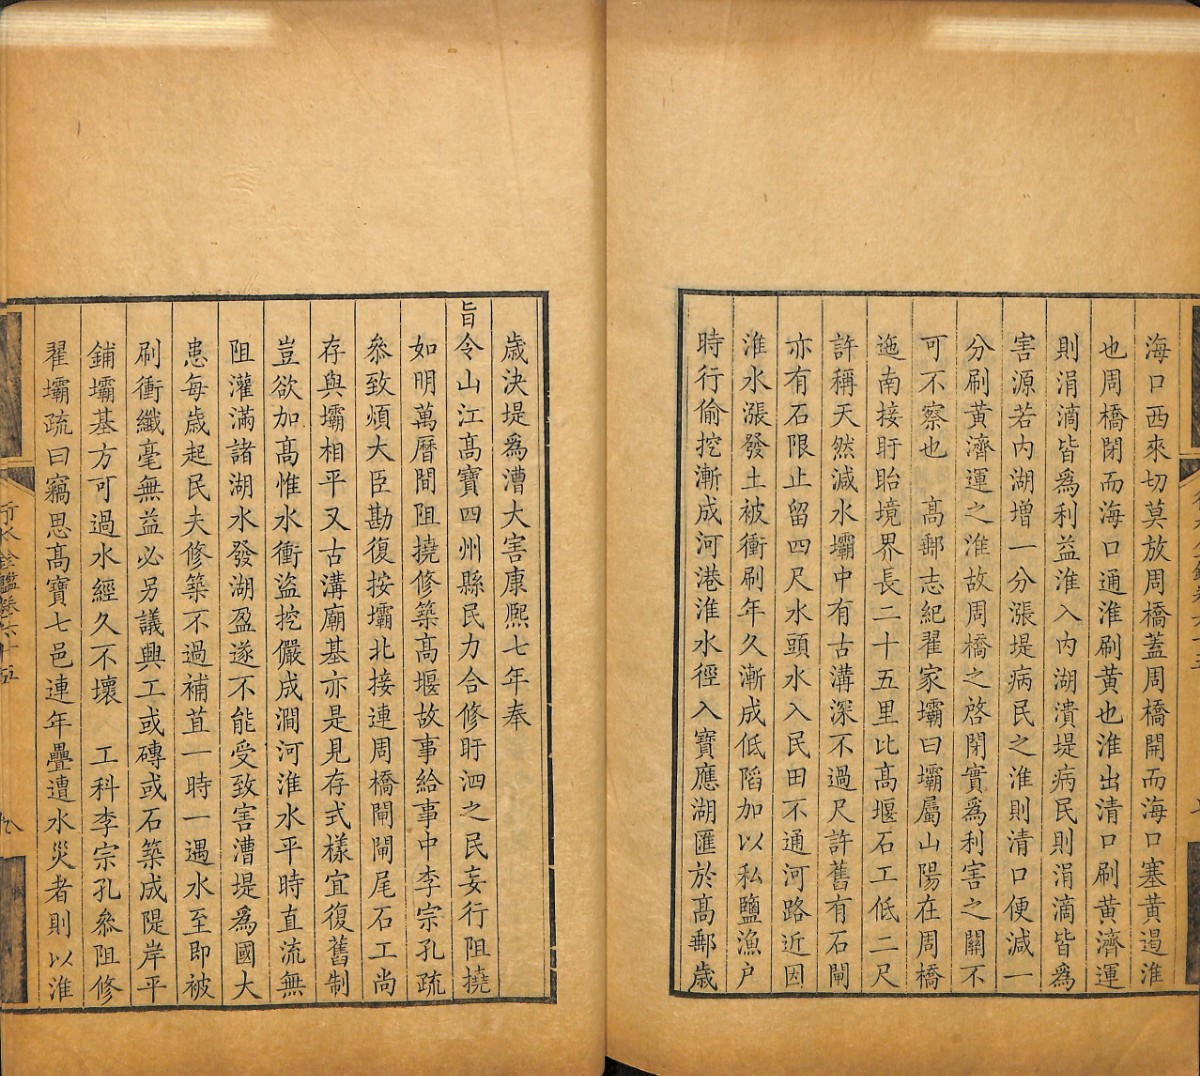 海口西來切莫放周橋蓋周橋開而海口塞黃遏淮
也周橋閉而海口通淮刷黃也淮出清口刷黃濟運
則涓滴皆爲利益淮入內湖潰堤病民則涓滴皆爲
害源若內湖增一分漲堤病民之淮則清口便減一
分刷黃濟運之淮故周橋之啓閉實爲利害之關不
可不察也　高郵志紀翟家壩曰壩屬山陽在周橋
迤南接盱眙境界長二十五里比高堰石工低二尺
許稱天然減水壩中有古溝深不過尺許舊有石閘
亦有石限止留四尺水頭水入民田不通河路近因
淮水漲發土被衝刷年久漸成低陷加以私鹽漁户
時行偷挖漸成河港淮水徑入寶應湖匯於高郵歲
歲決堤爲漕大害康熙七年奉
旨令山江高寶四州縣民力合修盱泗之民妄行阻撓
如明萬曆間阻撓修築高堰故事給事中李宗孔疏
叅致煩大臣勘復按壩北接連周橋閘閘尾石工尚
存與壩相平又古溝廟基亦是見存式樣宜復舊制
豈欲加高惟水衝盜挖儼成澗河淮水平時直流無
阻灌滿諸湖水發湖盈遂不能受致害漕堤爲國大
患每歲起民夫修築不過補苴一時一遇水至即被
刷衝纖毫無益必另議興工或磚或石築成隄岸平
鋪壩基方可過水經久不壞　工科李宗孔叅阻修
翟壩疏曰竊思高寶七邑連年疊遭水災者則以淮
行水金鑑卷六十五　九